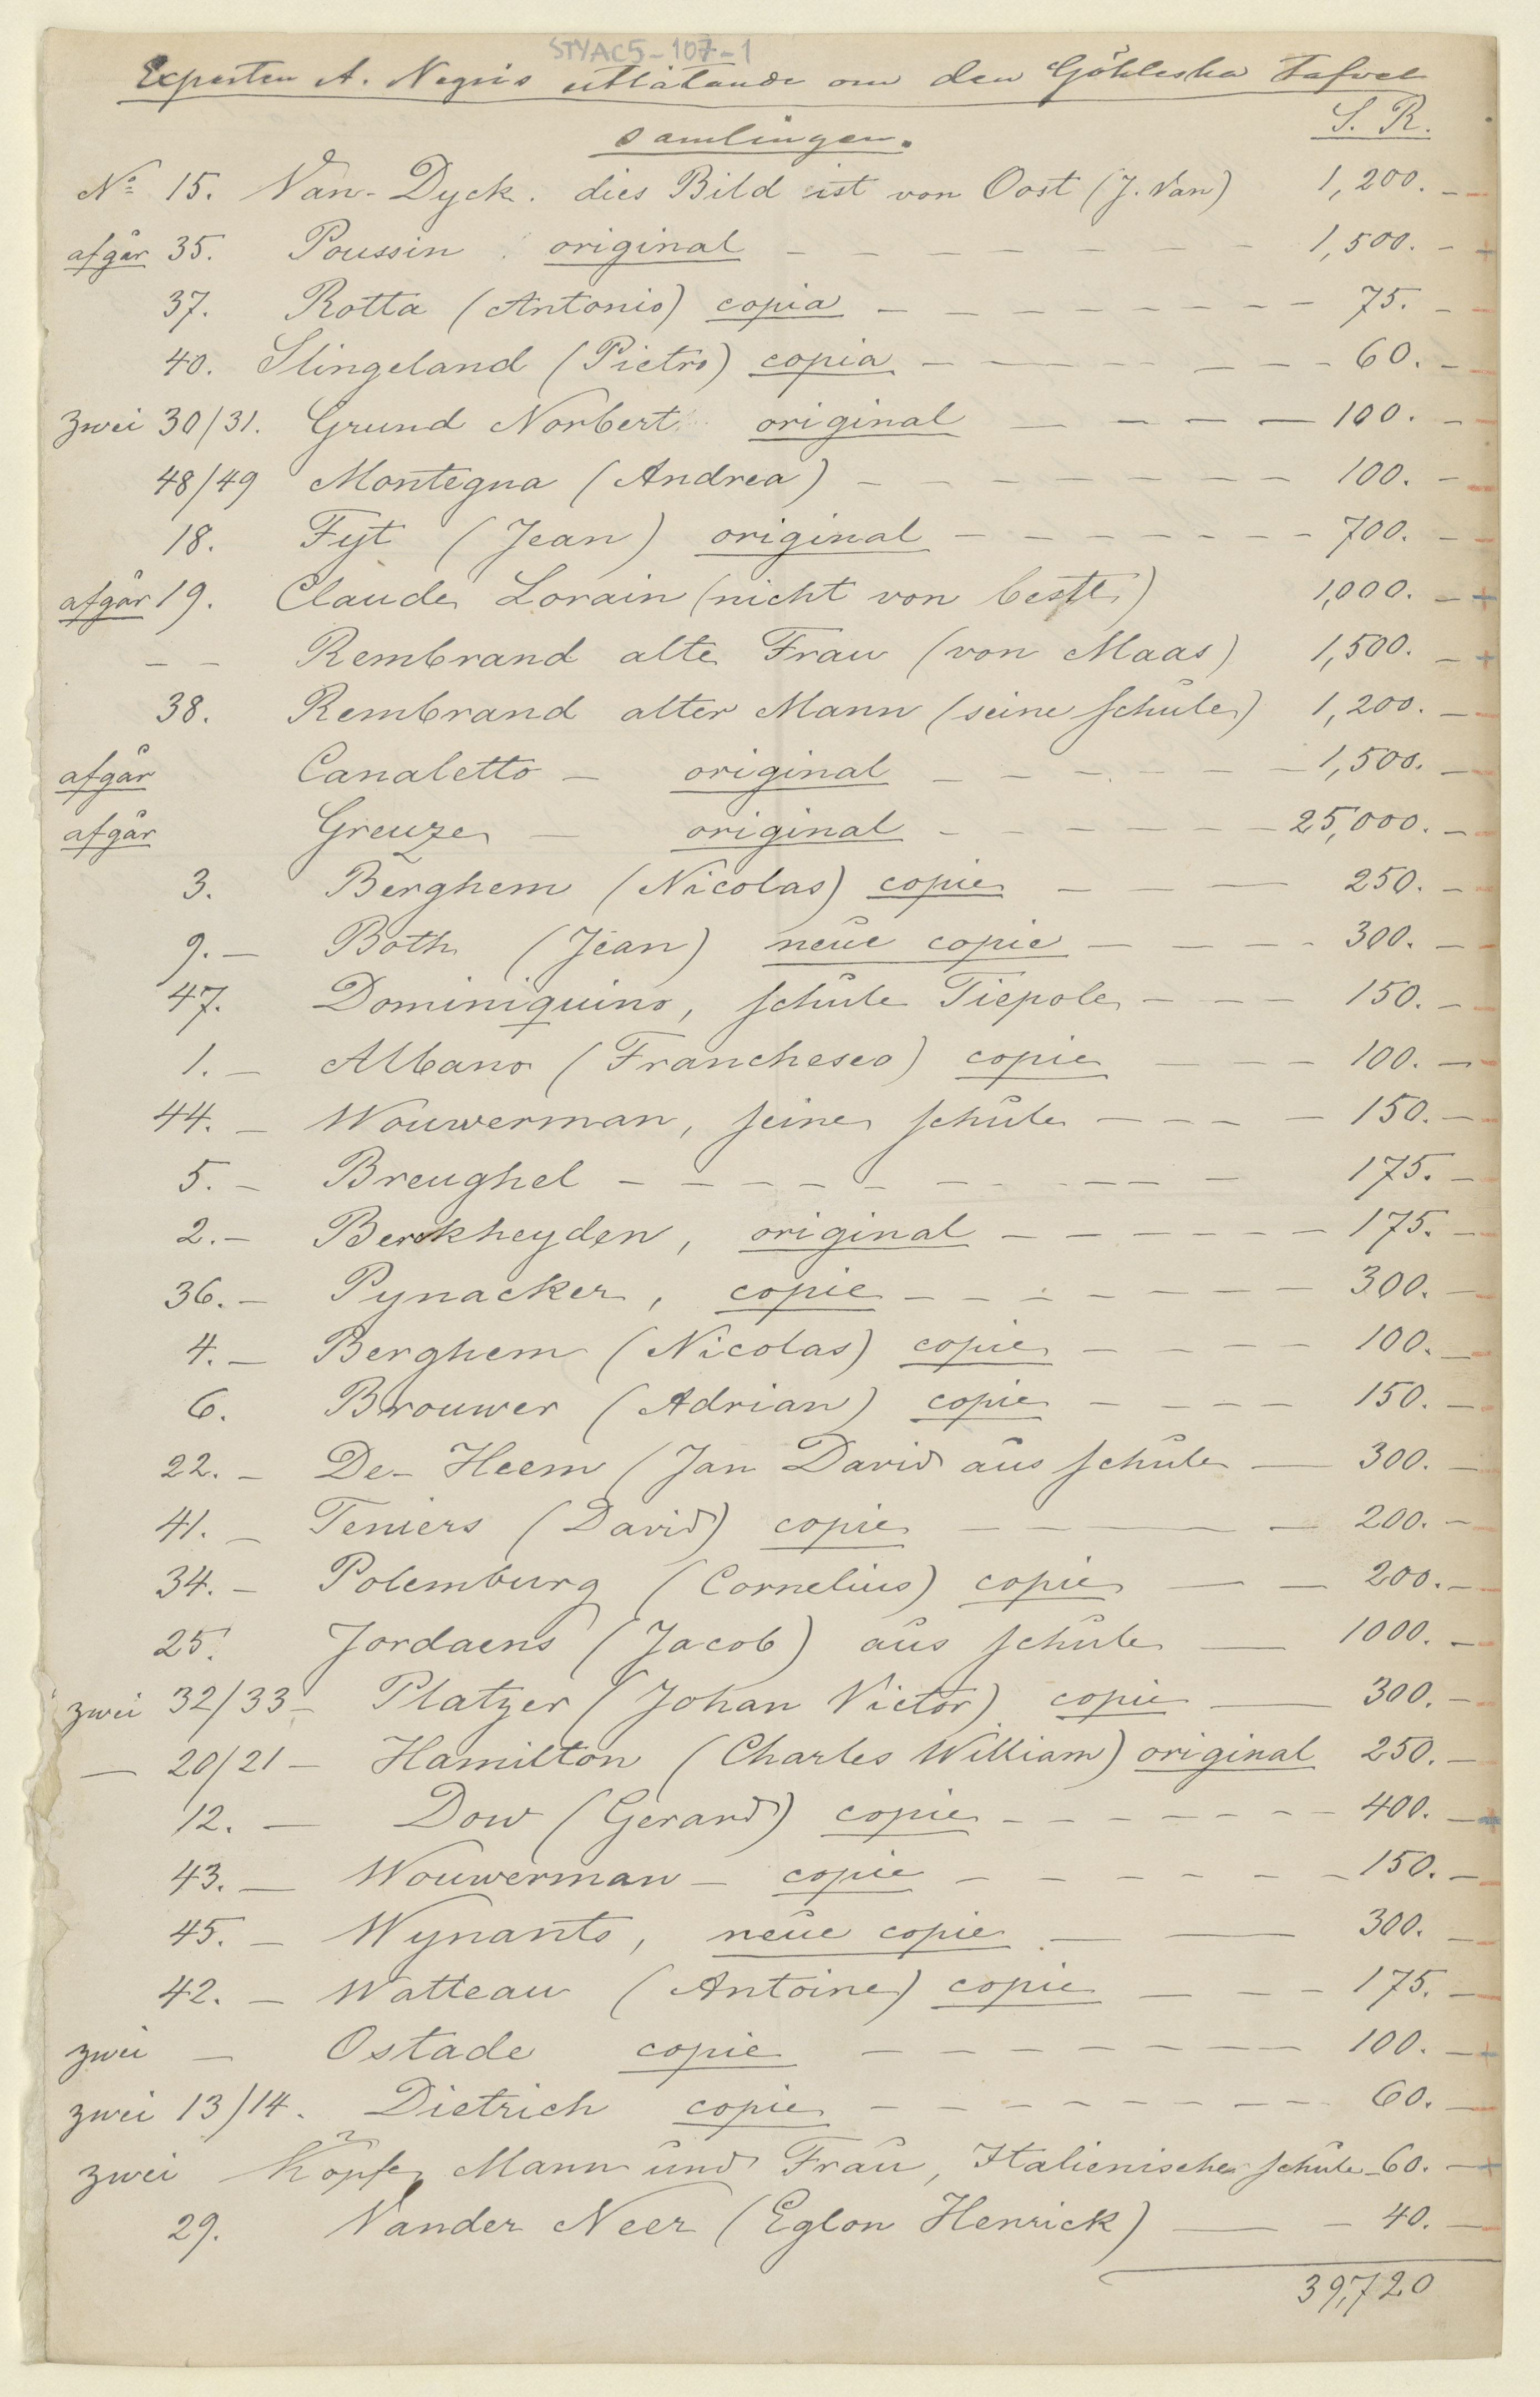 STYAC5-107-1
Experten A. Negris utlåtande om den Göhleska Tafvel
samlingen.
S. R.
No 15. Van-Dyck. dies Bild ist von Oost (J. Van) 1,200. -
afgår 35. Poussin original - - - - - - - 1,500. - +
37. Rotta (Antonio) copia - - - - - - - - 75. -
40. Slingeland (Pietro) copia - - - - - - - 60. -
zwei 30/31. Grund Norbert original - - - - 100. -
48/49 Montegna (Andrea) - - - - - - - - 100. -
18. Fyt (Jean) original - - - - - - - 700. -
afgår 19. Claude Lorain (nicht von beste) 1,000. - +
- - Rembrand alte Frau (von Maas) 1,500. - +
38. Rembrand alter Mann (seine schule) 1,200. -
afgår Canaletto - original - - - - - - - 1,500. -
afgår Greuze - original - - - - - - 25,000. -
3. Berghem (Nicolas) copie - - - 250. -
9. - Both (Jean) neue copie - - - - 300. -
47. Dominiquino, schule Tiepole - - - 150. -
1. - Albano (Franchesco) copie - - - 100. -
44. - Wouwerman, seine schule - - - - 150. -
5. - Breughel - - - - - - - - - - - 175. -
2. - Berckheyden, original - - - - - - 175. -
36. - Pynacker, copie - - - - - - - 300. -
4. - Berghem (Nicolas) copie - - - - - 100. -
6. Brouwer (Adrian) copie - - - - - 150. -
22. - De-Heem (Jan David aus schule - 300. -
41. - Teniers (David) copie - - - - 200. -
34. - Polemburg (Cornelius) copie - - 200. -
25. Jordaens (Jacob) aus schule - 1000. -
zwei 32/33 - Platzer (Johan Victor) copie - 300. -
- 20/21 - Hamilton (Charles William) original 250. -
12. - Dow (Gerard) copie - - - - - - - 400. - +
43. - Wouwerman - copie - - - - - - 150. -
45. - Wynants, neue copie - - 300. -
42. - Watteau (Antoine) copie - - - 175. -
zwei - Ostade copie - - - - - - - - 100. - +
zwei 13/14. Dietrich copie - - - - - - - - 60. -
zwei Köpfe Mann und Frau, Italienische schule - 60. - +
29. Vander Neer (Eglon Henrick) - - 40. -
39,720